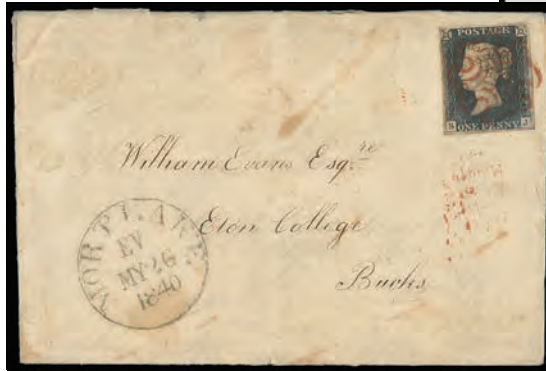 POSTAGE
ONE PENNY
William Evans Esqre
Eton College
Bucks
MORTLAKE
EV
MY 26
1840